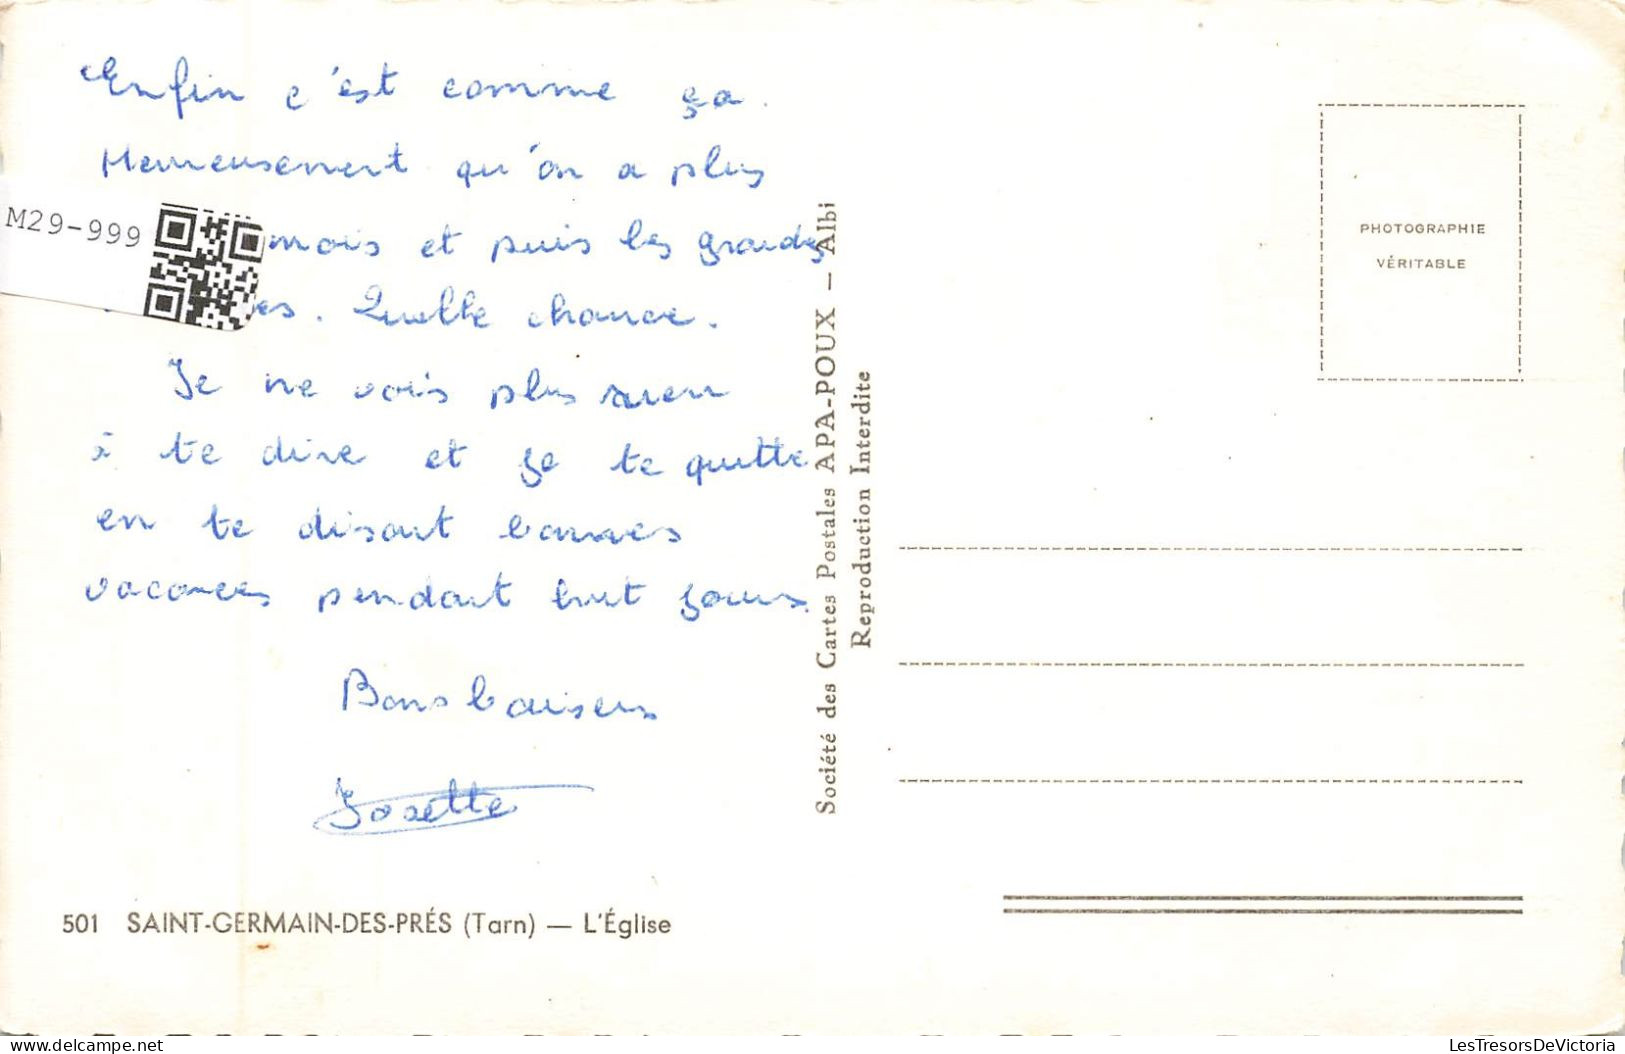 Enfin c'est comme ça.
Heureusement qu'on a plus
M29-999
mois et puis les grandes
Quelle chance.
Je ne vois plus rien
à te dire et je te quitte
en te disant bonnes
vacances pendant huit jours.
Bons baisers
Josette
501 SAINT-GERMAIN-DES-PRÉS (Tarn) — L'Église
Société des Cartes Postales APA-POUX — Albi
Reproduction Interdite
PHOTOGRAPHIE
VÉRITABLE
LesTresorsDeVictoria
www.delcampe.net